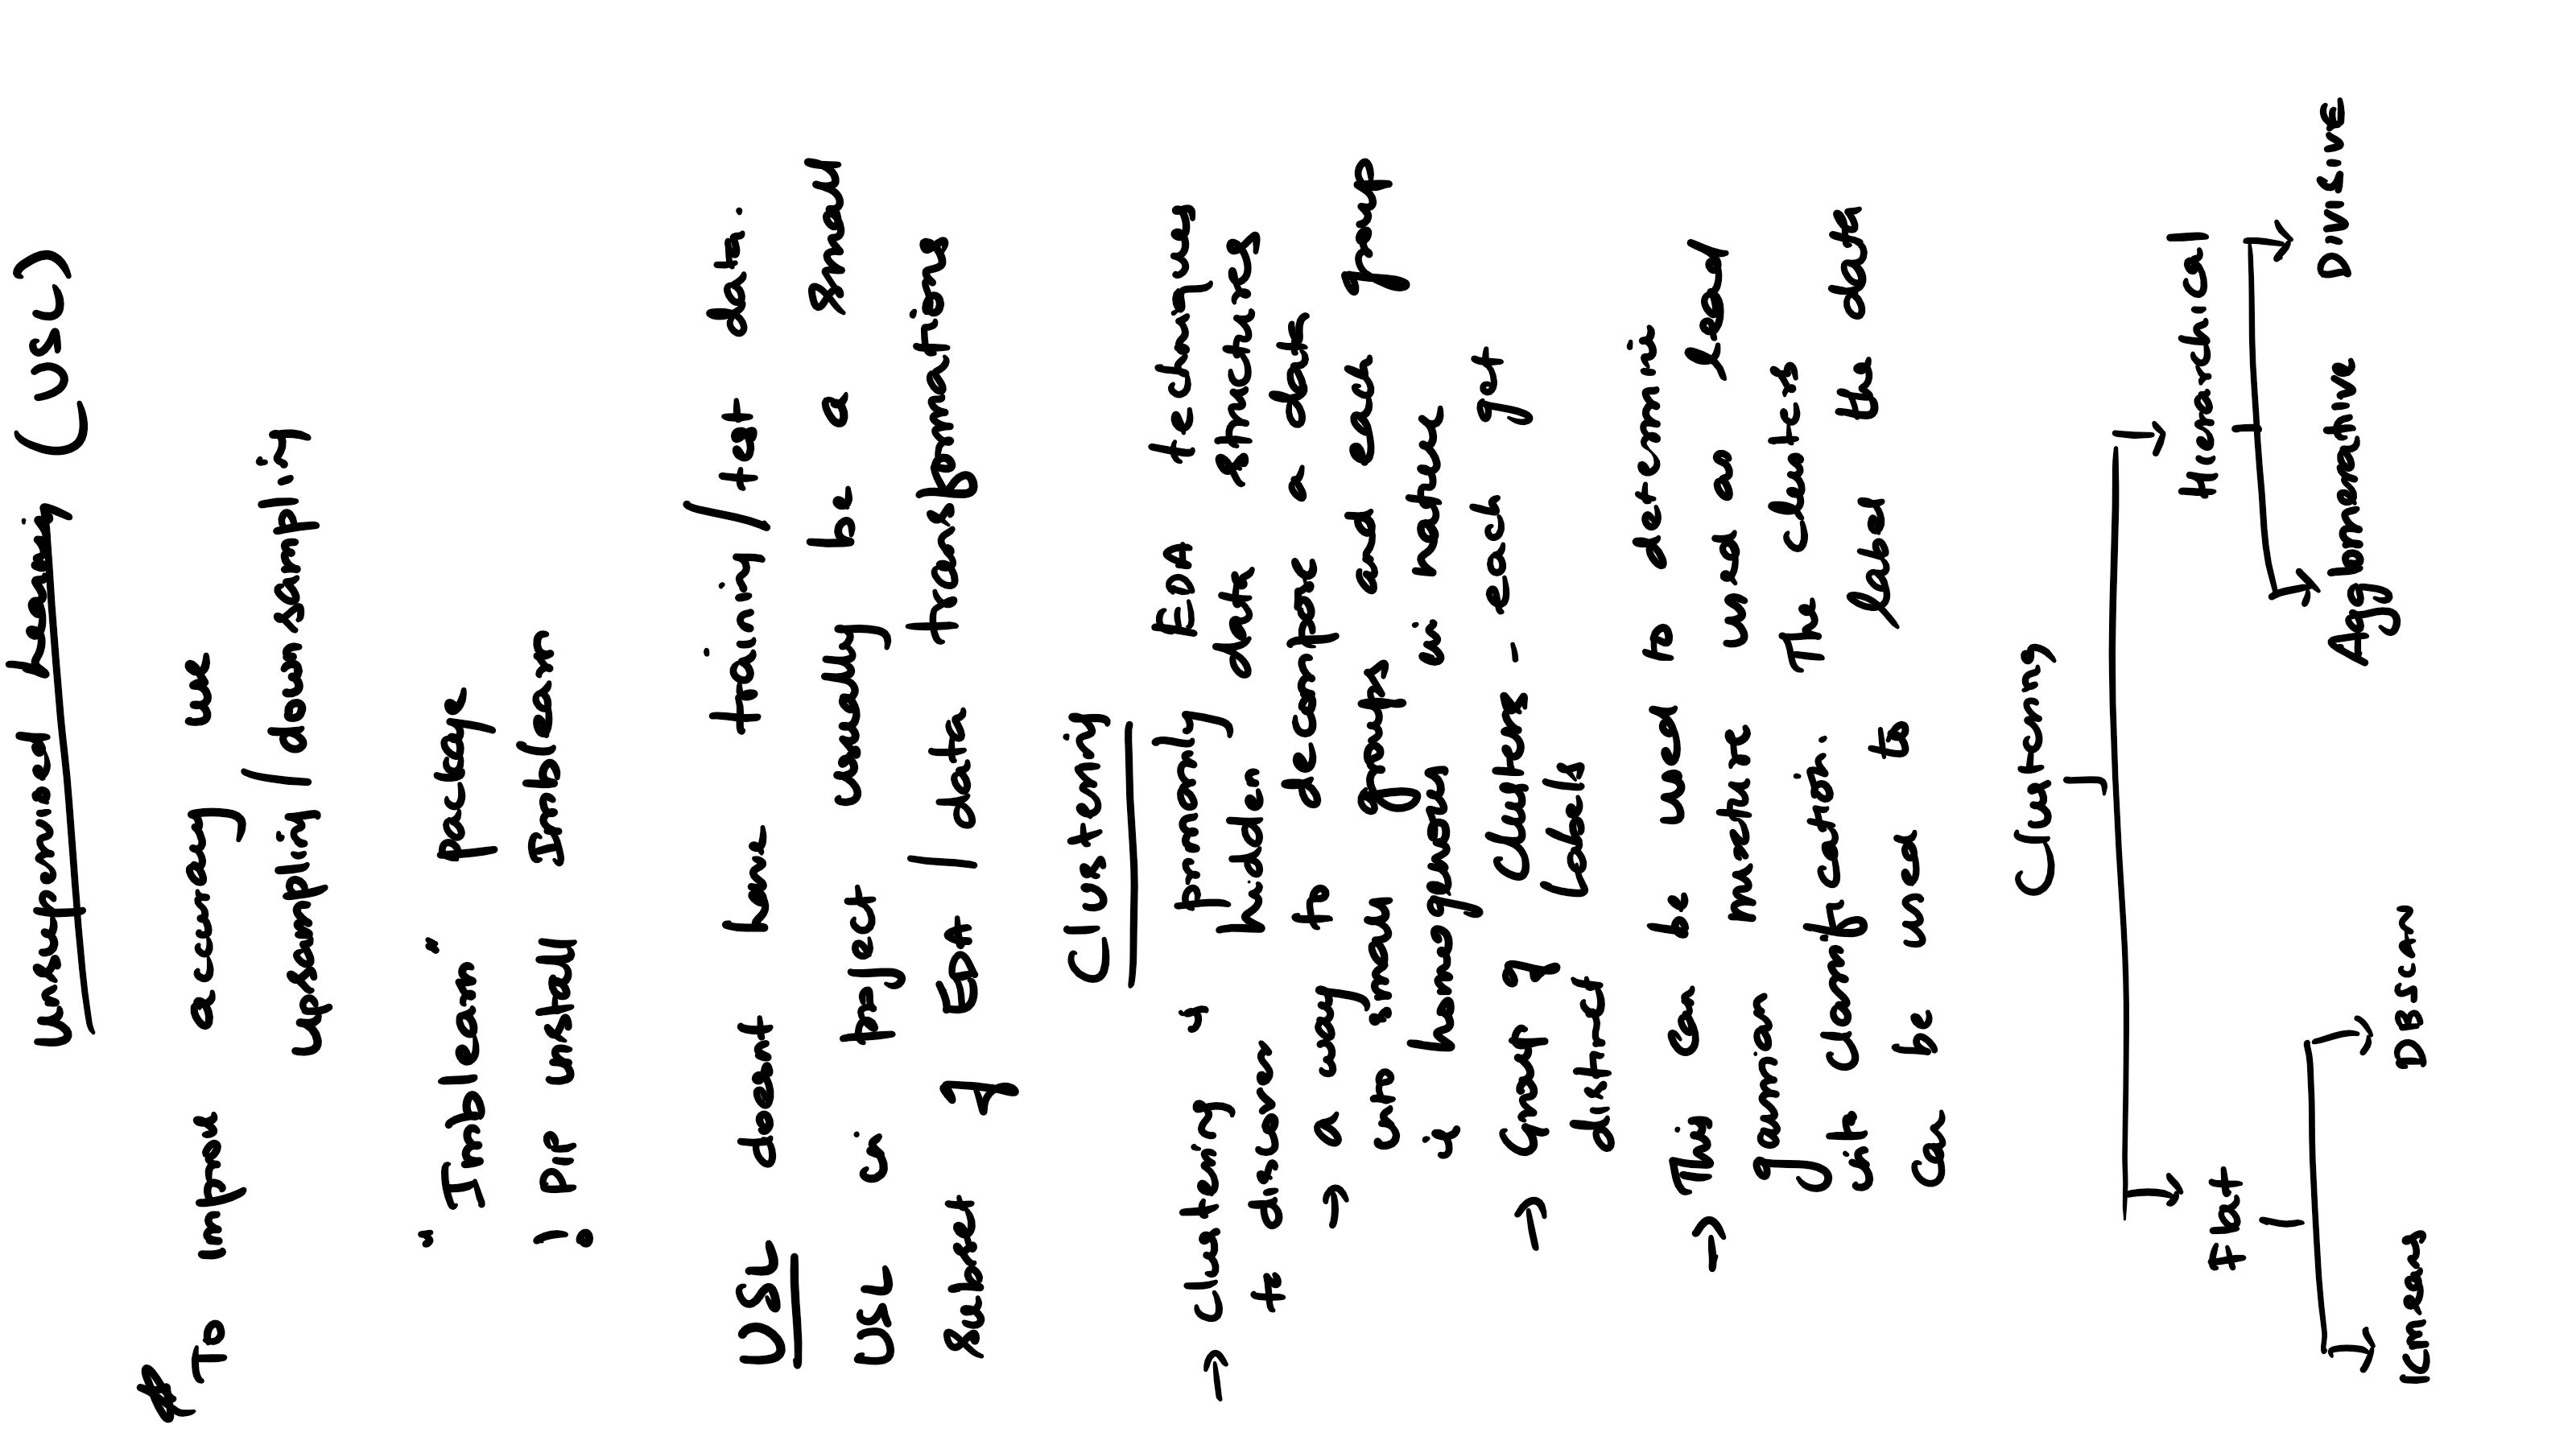 Unsupervised learning (USL)
# To improve accuracy use
upsampling/downsampling
"Imblearn" package
! pip install Imblearn
USL doesnt have training/test data.
USL in project usually be a small
subset of EDA/data transformations
Clustering
→ Clustering is primarily EDA techniques
to discover hidden data structures
→ a way to decompose a data
into small groups and each group
is homogenous in nature
→ Group of clusters - each get
distinct labels
→ This can be used to determine
gaussian mixture used as lead
into classification. The clusters
can be used to label the data
Clustering
Flat Hierarchical
Kmeans DBscan Agglomerative DIVISIVE